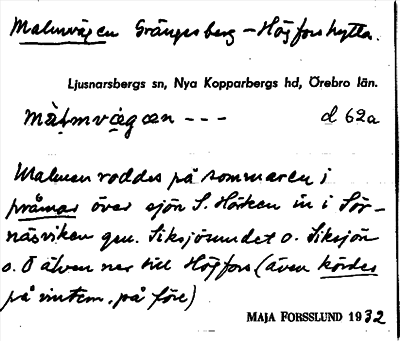 Malmvägen Grängesberg – Högforshytta.
Ljusnarsbergs sn, Nya Kopparbergs hd, Örebro län.
màḷmvä̀gæn - - - d 62a
Malmen roddes på sommaren i
pråmar över sjön S. Hörken in i Sör-
näsviken gm. Siksjösundet o. Siksjön
o. älven ner till Högfors (även kördes
på vintern, på före)
MAJA FORSSLUND 1932